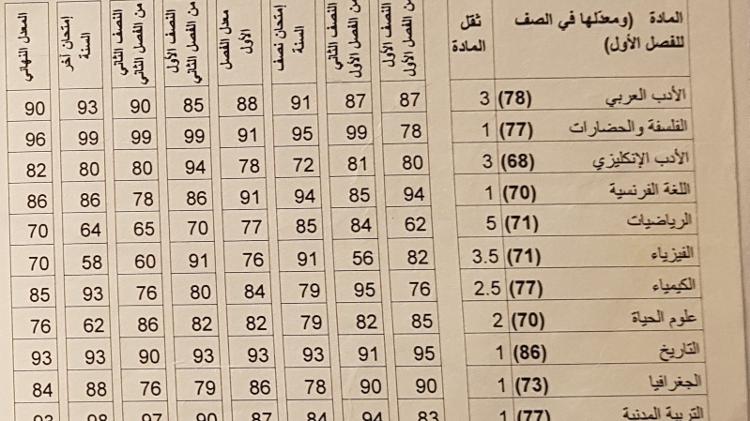 المادة (ومعدّلها في الصف للفصل الأول) ثقل المادة النصف الأول من الفصل الأول النصف الثاني من الفصل الأول إمتحان نصف السنة معدل الفصل الأول النصف الأول من الفصل الثاني النصف الثاني من الفصل الثاني إمتحان آخر السنة المعدل النهائي
الأدب العربي (78) 3 87 87 91 88 85 90 93 90
الفلسفة والحضارات (77) 1 78 99 95 91 99 99 99 96
الأدب الإنكليزي (68) 3 80 81 72 78 94 80 80 82
اللغة الفرنسية (70) 1 94 85 94 91 86 78 86 86
الرياضيات (71) 5 62 84 85 77 70 65 64 70
الفيزياء (71) 3.5 82 56 91 76 91 60 58 70
الكيمياء (77) 2.5 76 95 79 84 80 76 93 85
علوم الحياة (70) 2 85 82 79 82 82 86 62 76
التاريخ (86) 1 95 91 93 93 93 90 93 93
الجغرافيا (73) 1 90 90 78 86 79 76 88 84
التربية المدنية (77) 1 83 94 84 87 90 97 98